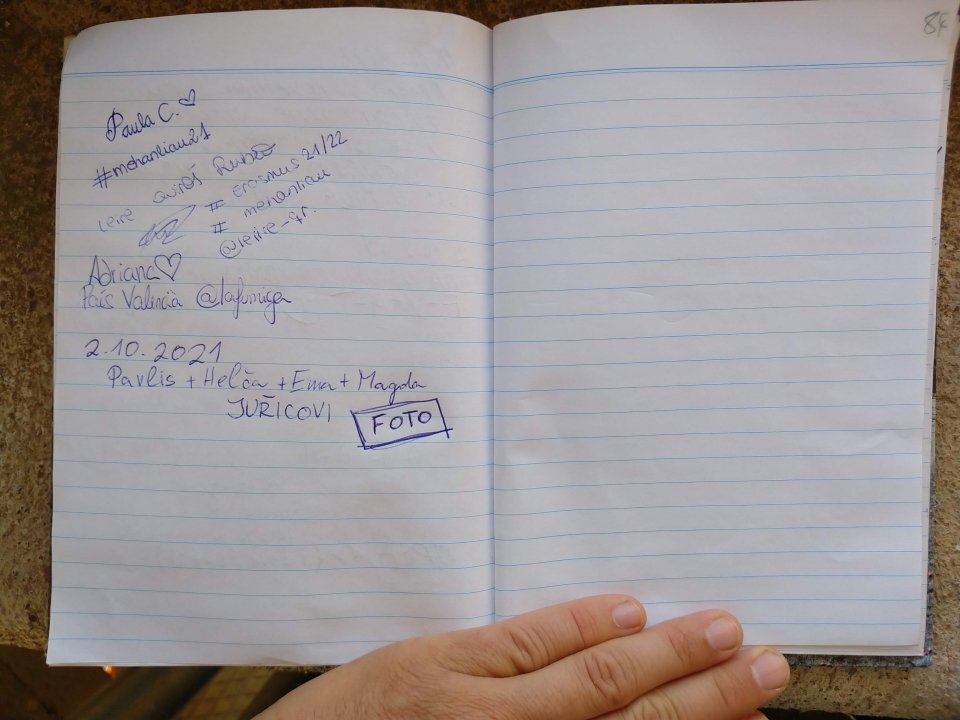 Paula C. ♡
#menantiau21
Leire Quirós Rubio
# Erasmus 21/22
# menantiau
Adriana ♡
País Valencià @lafumiga
2.10.2021
Pavlis + Helča + Ema + Magda
JUŘICOVI FOTO
84